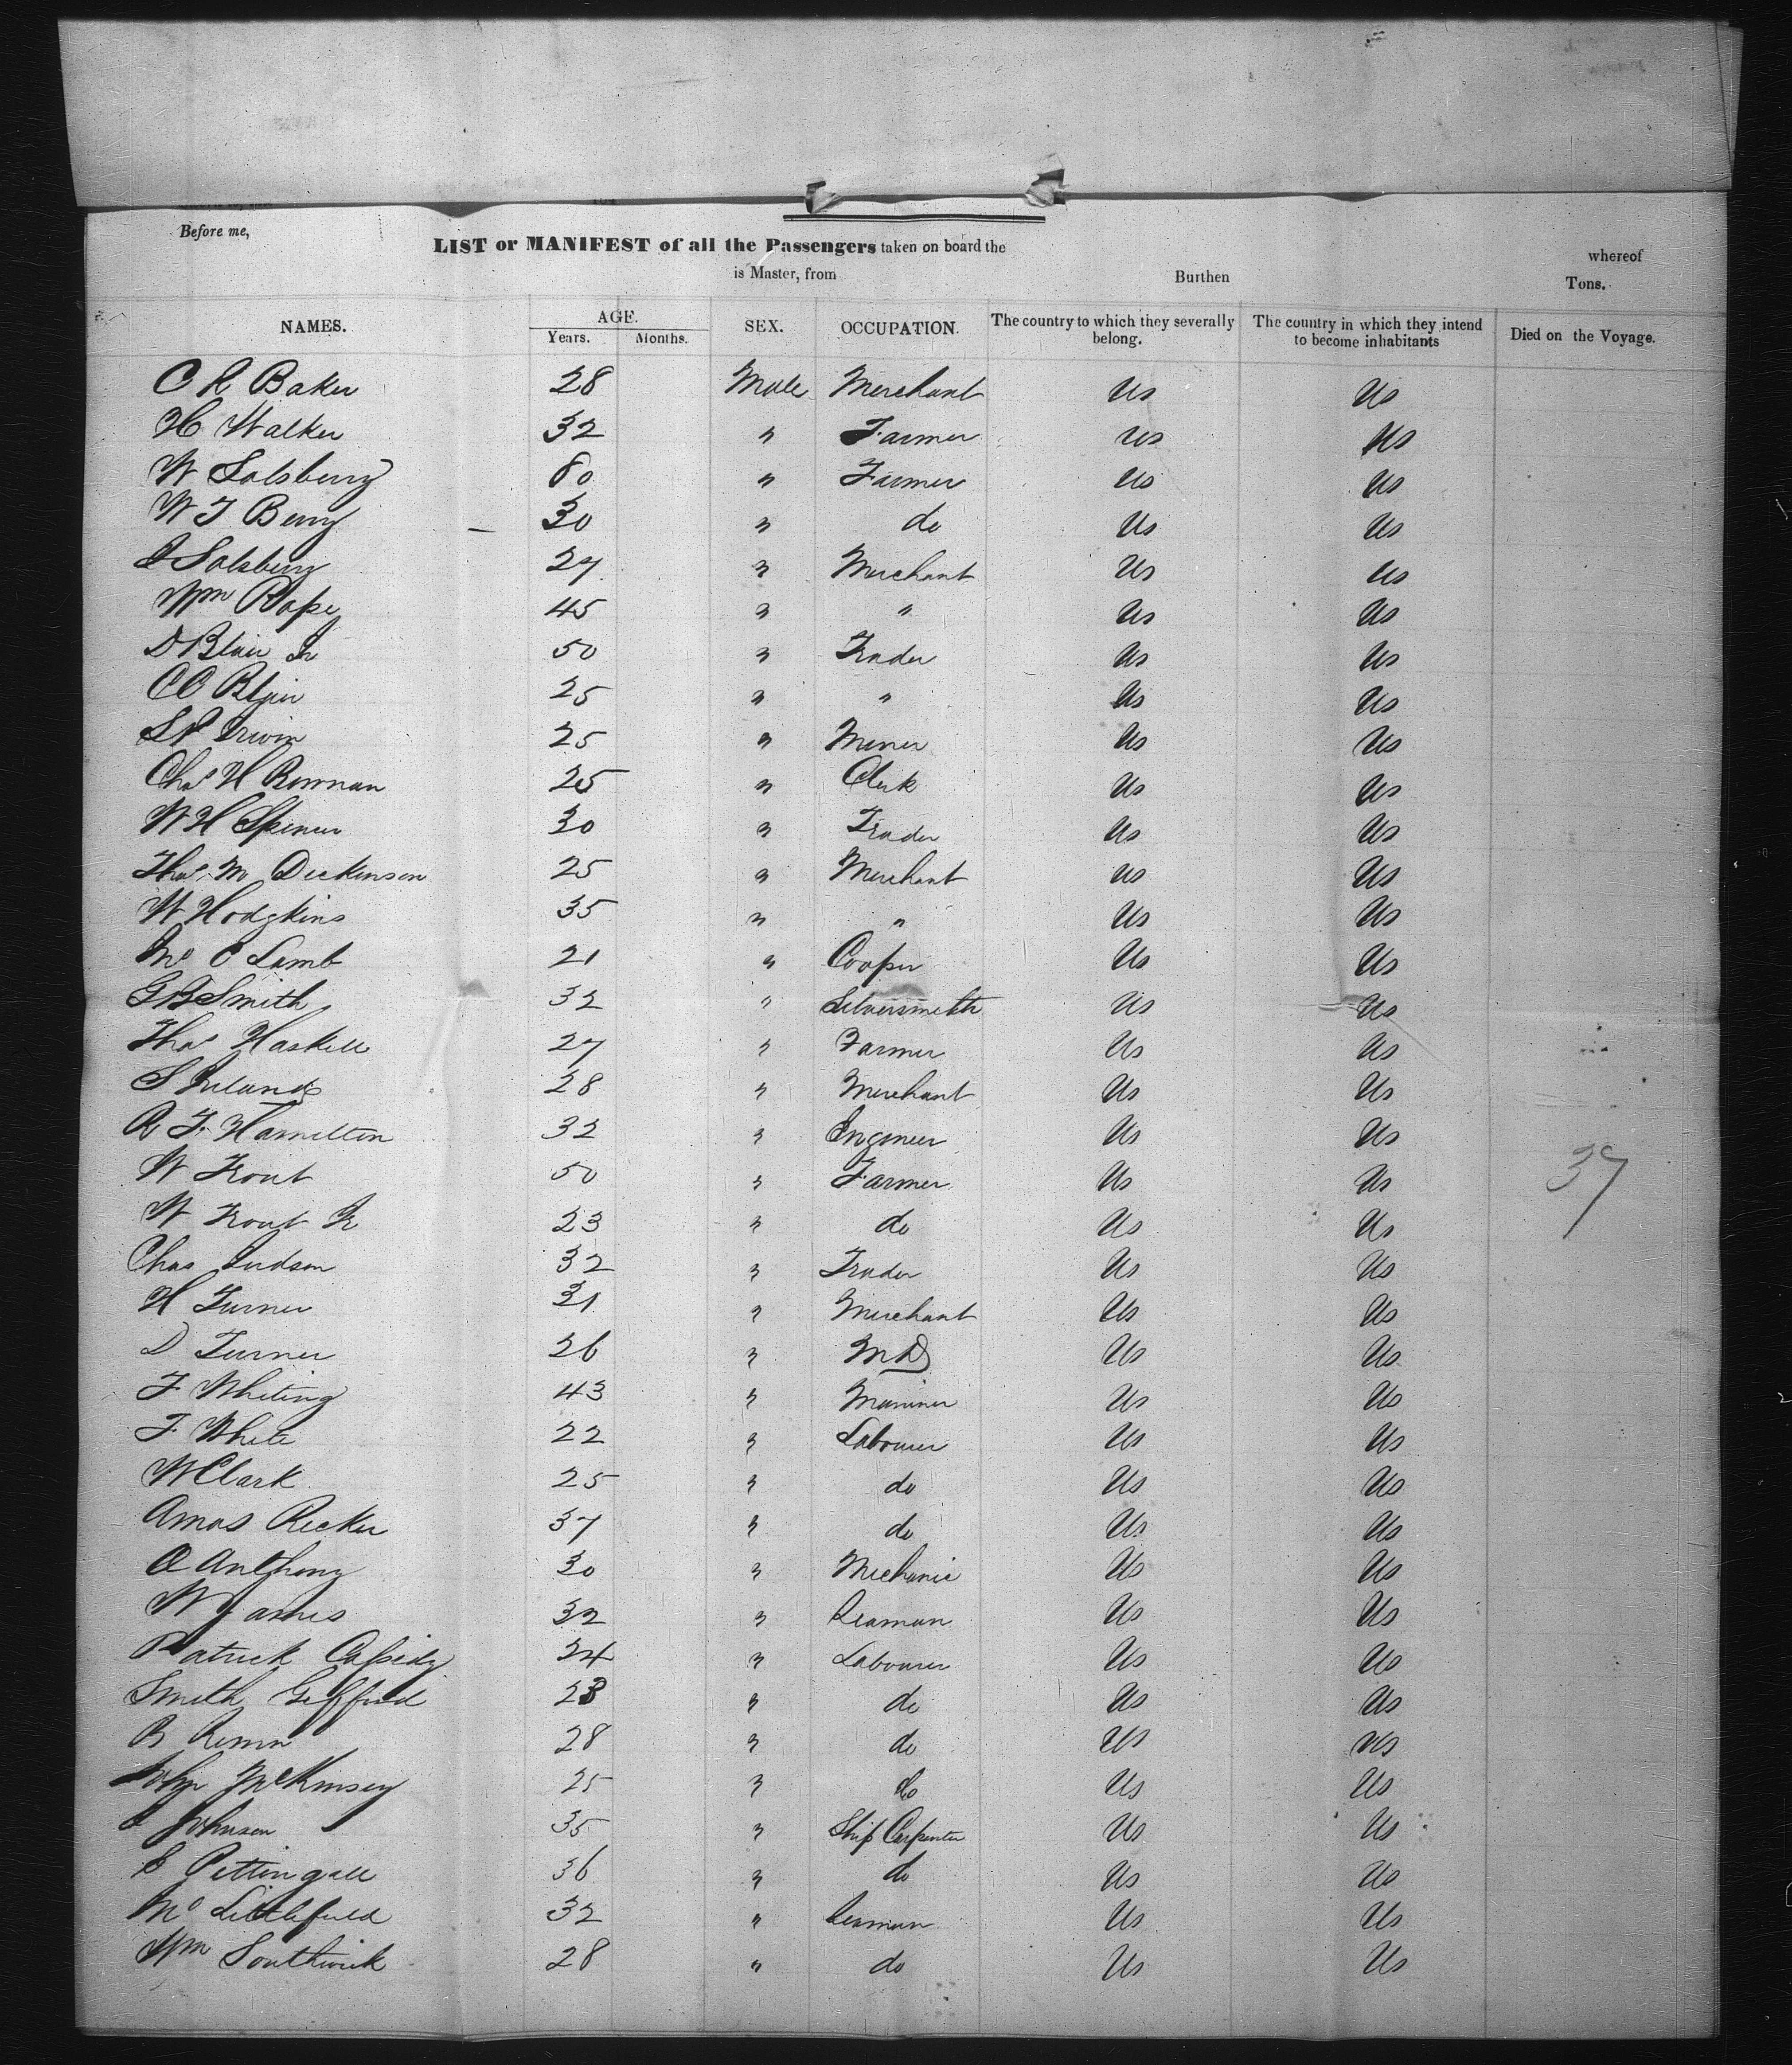 Before me,
LIST or MANIFEST of all the Passengers taken on board the whereof
is Master, from Burthen Tons.
NAMES. AGE. SEX. OCCUPATION. The country to which they severally belong. The country in which they intend to become inhabitants Died on the Voyage.
Years. Months.
C R Baker 28 Male Merchant Us Us
H Walker 32 " Farmer Us Us
W Salsbury 80 " Farmer Us Us
W T Berry 30 " do Us Us
Salsbury 27 " Merchant Us Us
Wm Pope 45 " " Us Us
D Blair Jr 50 " Trader Us Us
C O Blair 25 " " Us Us
S P Irwin 25 " Miner Us Us
Chas H Bowman 25 " Clerk Us Us
W H Spencer 30 " Trader Us Us
Thos M Dickinson 25 " Merchant Us Us
W Hodgkins 35 " " Us Us
C Lamb 21 " Cooper Us Us
G B Smith 32 " Silversmith Us Us
Thos Haskell 27 " Farmer Us Us
S Ireland 28 " Merchant Us Us
R F Hamilton 32 " Engineer Us Us
W Trout 50 " Farmer Us Us
W Trout Jr 23 " do Us Us
37
Chas Judson 32 " Trader Us Us
H Turner 31 " Merchant Us Us
D Turner 26 " MD Us Us
F Whiting 43 " Mariner Us Us
F White 22 " Labourer Us Us
W Clark 25 " do Us Us
Amos Ricker 37 " do Us Us
A Anthony 30 " Mechanic Us Us
W James 32 " Seaman Us Us
Patrick Cassidy 24 " Labourer Us Us
Smith Gifford 23 " do Us Us
B 28 " do Us Us
John McKinsey 25 " do Us Us
Johnson 35 " Ship Carpenter Us Us
S Pettingall 36 " do Us Us
Littlefield 32 " Seaman Us Us
Wm Southwick 28 " do Us Us